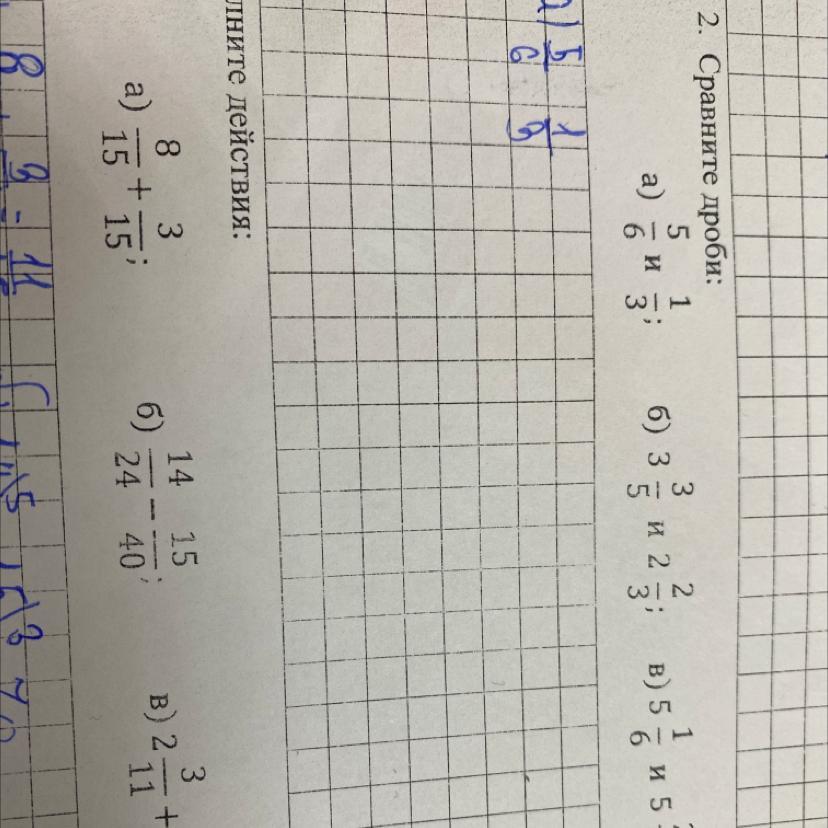 2. Сравните дроби:
а) 5/6 и 1/3; б) 3 3/5 и 2 2/3; в) 5 1/6 и 5
а) 5/6 1/3
лните действия:
а) 8/15 + 3/15; б) 14/24 − 15/40; в) 2 3/11 +